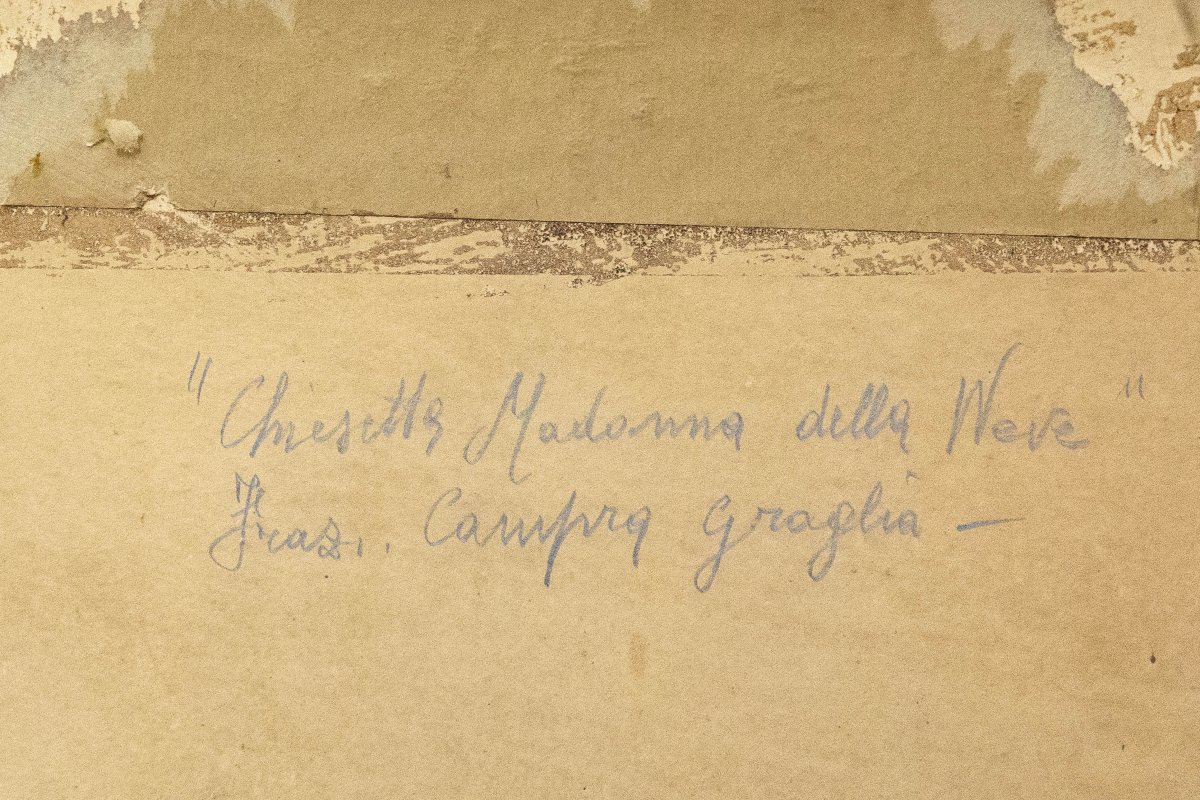 "Chiesetta Madonna della Neve"
Fraz. Campra Graglia -